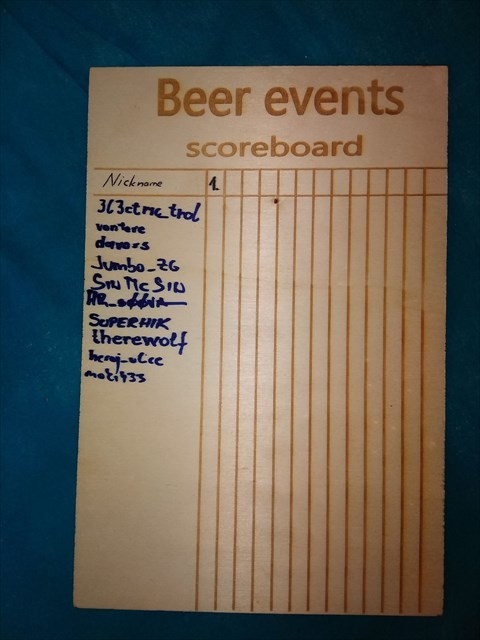 Beer events
scoreboard
Nickname 1.
3l3ctric_trol
ventere
davors
Jumbo_ZG
Sin Mc Sin
SUPERHIK
therewolf
heroj_ulice
moki433